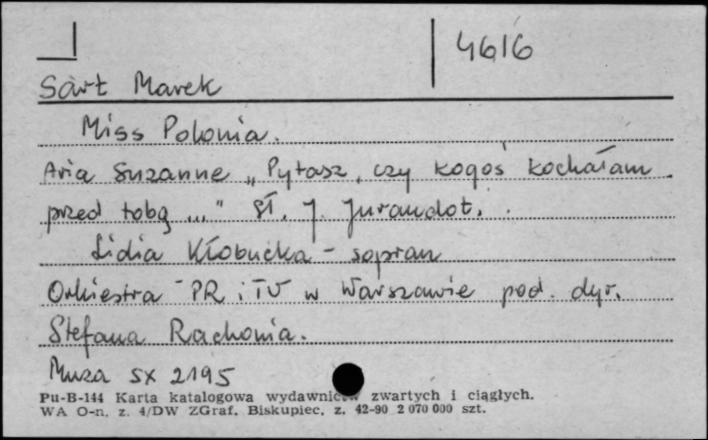 4616
Sart Marek
Miss Polonia.
Aria Suzanne „Pytasz, czy kogoś kochałam
przed tobą ..." sł. J. Jurandot.
Lidia Kłobucka - sopran
Orkiestra PR i TV w Warszawie pod. dyr.
Stefana Rachonia.
Muza SX 2195
Pu-B-144 Karta katalogowa wydawnictw zwartych i ciągłych.
WA O-n. z. 4/DW ZGraf. Biskupiec, z. 42-90 2 070 000 szt.